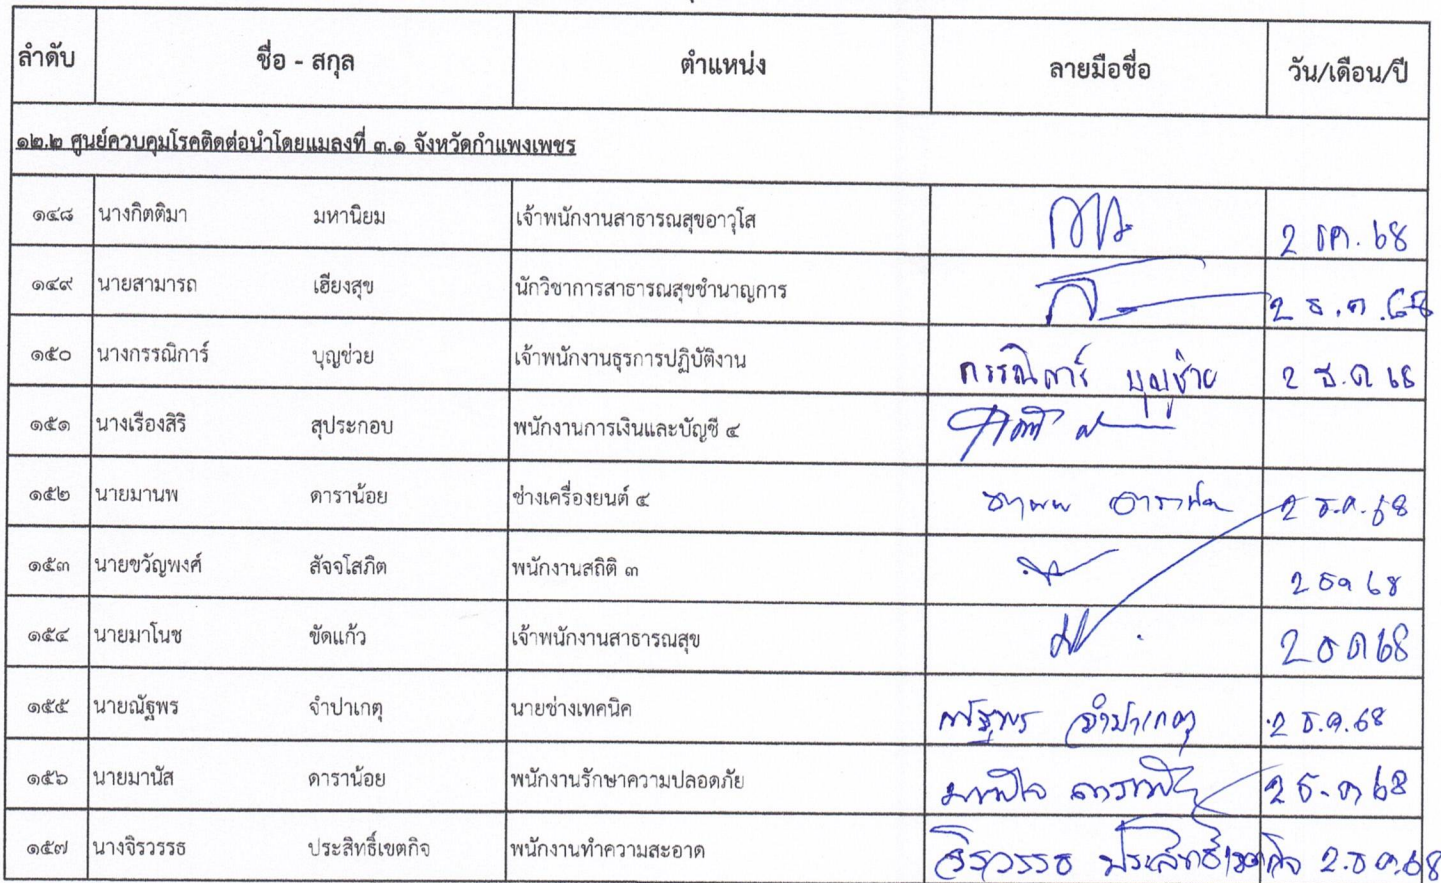 ลำดับ ชื่อ - สกุล ตำแหน่ง ลายมือชื่อ วัน/เดือน/ปี
๑๒.๒ ศูนย์ควบคุมโรคติดต่อนำโดยแมลงที่ ๓.๑ จังหวัดกำแพงเพชร
๑๔๘ นางกิตติมา มหานิยม เจ้าพนักงานสาธารณสุขอาวุโส 2 ธค. 68
๑๔๙ นายสามารถ เฮียงสุข นักวิชาการสาธารณสุขชำนาญการ 2 ธ.ค. 68
๑๕๐ นางกรรณิการ์ บุญช่วย เจ้าพนักงานธุรการปฏิบัติงาน กรรณิการ์ บุญช่วย 2 ธ.ค 68
๑๕๑ นางเรืองสิริ สุประกอบ พนักงานการเงินและบัญชี ๔
๑๕๒ นายมานพ ดาราน้อย ช่างเครื่องยนต์ ๔ 2 ธ.ค. 68
๑๕๓ นายขวัญพงศ์ สัจจโสภิต พนักงานสถิติ ๓ 2 ธค 68
๑๕๔ นายมาโนช ขัดแก้ว เจ้าพนักงานสาธารณสุข 2 ธค 68
๑๕๕ นายณัฐพร จำปาเกตุ นายช่างเทคนิค ณัฐพร จำปาเกตุ 2 ธ.ค.68
๑๕๖ นายมานัส ดาราน้อย พนักงานรักษาความปลอดภัย 2 ธ.ค 68
๑๕๗ นางจิรวรรธ ประสิทธิ์เขตกิจ พนักงานทำความสะอาด จิรวรรธ ประสิทธิ์เขตกิจ 2.ธ.ค.68